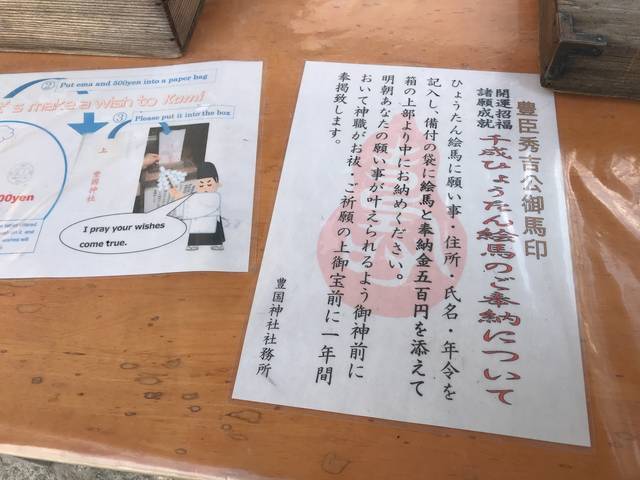 ② Put ema and 500yen into a paper bag
's make a wish to Kami
③ Please put it into the box
上
豊国神社
00yen
I pray your wishes
come true.
豊臣秀吉公御馬印
開運招福
諸願成就
千成ひょうたん絵馬のご奉納について
ひょうたん絵馬に願い事・住所・氏名・年令を
記入し、備付の袋に絵馬と奉納金五百円を添えて
箱の上部より中にお納めください。
明朝あなたの願い事が叶えられるよう御神前に
おいて神職がお祓、ご祈願の上御宝前に一年間
奉掲致します。
豊国神社社務所